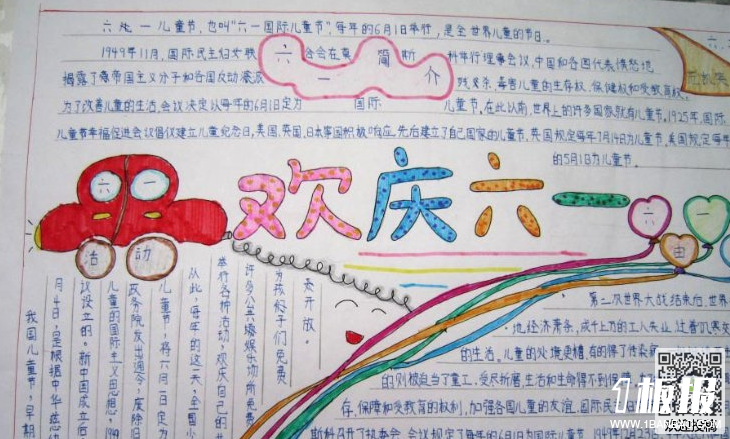 六是一儿童节,也叫"六一国际儿童节",每年的6月1日举行,是全世界儿童的节日。
1949年11月,国际民主妇女联合会在莫斯科举行理事会议,中国和各国代表愤怒地
揭露了帝国主义分子和各国反动派残杀、毒害儿童的
生存权、保健权和受教育权,
为了改善儿童的生活,会议决定以每年的6月1日定为国际儿童节。在此以前,世界上的许多国家就有儿童节。1925年,国际
儿童节幸福促进会议倡仪建立儿童纪念日,英国,日本等国积极响应,先后建立了自己国家的儿童节,英国规定每年7月14日为儿童节,美国规定每年
的5月1日为儿童节。
六一简介
欢庆六一
六一
活动
六一
由
我国儿童节,早期
月4日,是根据中华慈幼
议设立的。新中国成立后
儿童的国际主义思想,
政务院发出通令,废除旧
儿童节,将六月一日定为
从此,每年的这一天,全
举行各种活动,欢庆自己的
许多公共娱乐场所免费
为孩子们免费
开放。
第二次世界大战结束后,世界
地,经济萧条,成千上万的工人失业,过着饥寒交
的生活。儿童的处境更糟,有的得了传染
的则被迫当了童工,受尽折磨,生活和生命得不到保障
存、保障和受教育的权利,加强各国儿童的友谊,国际民主
斯科召开了执委会,会议规定了每年
1板报
WWW.1BANBAO.COM